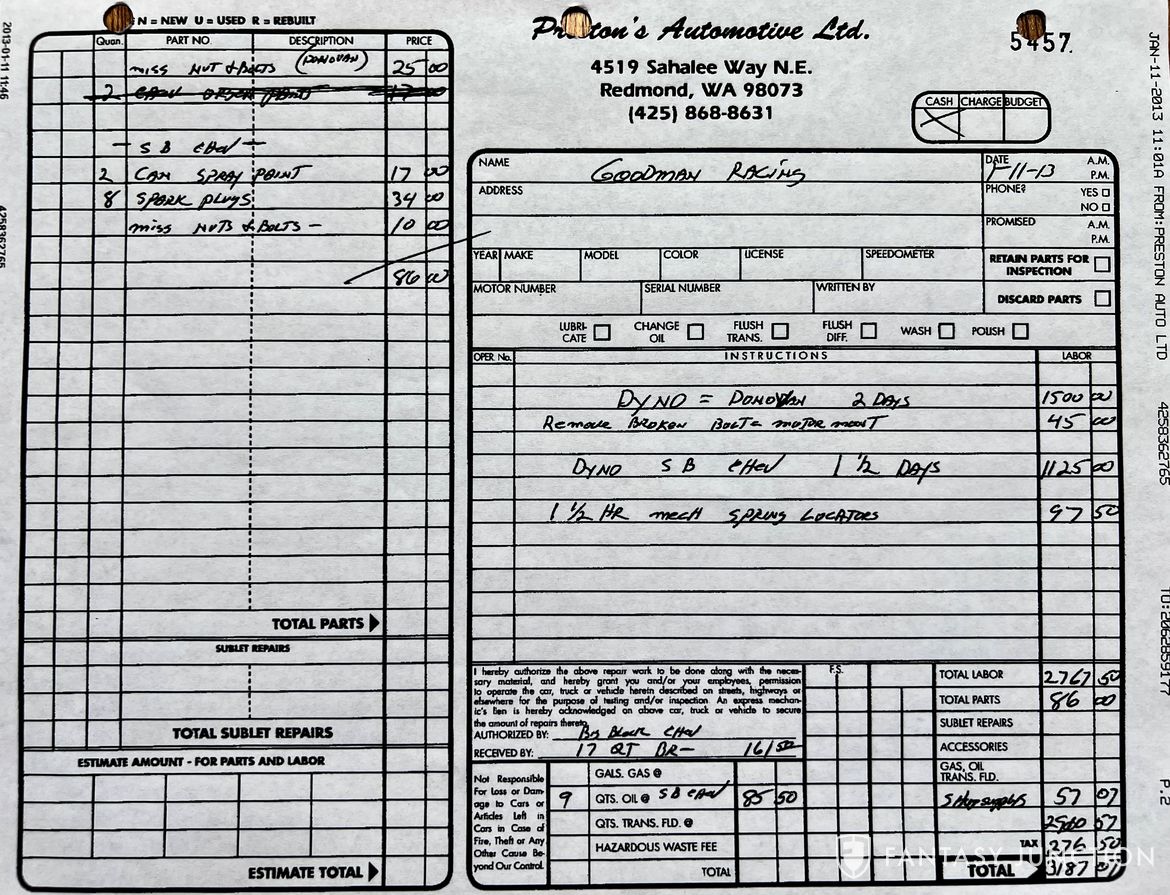 N = NEW U = USED R = REBUILT
Quan. PART NO. DESCRIPTION PRICE
miss NUT & BOLTS (DONOVAN) 25 00
2 17 00
S B CHEV
2 CAN SPRAY PAINT 17 00
8 SPARK PLUGS 34 00
miss NUTS & BOLTS - 10 00
86 00
TOTAL PARTS
SUBLET REPAIRS
TOTAL SUBLET REPAIRS
ESTIMATE AMOUNT - FOR PARTS AND LABOR
ESTIMATE TOTAL
Preston's Automotive Ltd.
4519 Sahalee Way N.E.
Redmond, WA 98073
(425) 868-8631
5457
CASH CHARGE BUDGET
NAME GOODMAN RACING
DATE 1-11-13 A.M.
P.M.
ADDRESS
PHONE? YES
NO
PROMISED A.M.
P.M.
YEAR MAKE MODEL COLOR LICENSE SPEEDOMETER
RETAIN PARTS FOR
INSPECTION
MOTOR NUMBER SERIAL NUMBER WRITTEN BY
DISCARD PARTS
LUBRI-
CATE CHANGE
OIL FLUSH
TRANS. FLUSH
DIFF. WASH POLISH
OPER. No. INSTRUCTIONS LABOR
DYNO = DONOVAN 2 DAYS 1500 00
Remove BROKEN BOLT = MOTOR MOUNT 45 00
DYNO S B CHEV 1 1/2 DAYS 1125 00
1 1/2 HR mech SPRING LOCATORS 97 50
I hereby authorize the above repair work to be done along with the neces-
sary material, and hereby grant you and/or your employees, permission
to operate the car, truck or vehicle herein described on streets, highways or
elsewhere for the purpose of testing and/or inspection. An express mechan-
ic's lien is hereby acknowledged on above car, truck or vehicle to secure
the amount of repairs thereto.
AUTHORIZED BY: Big Block CHEV
RECEIVED BY: 17 QT BR- 161 50
F.S.
Not Responsible
For Loss or Dam-
age to Cars or
Articles Left in
Cars in Case of
Fire, Theft or Any
Other Cause Be-
yond Our Control.
GALS. GAS @
9 QTS. OIL @ S B CHEV 85 50
QTS. TRANS. FLD. @
HAZARDOUS WASTE FEE
TOTAL
TOTAL LABOR 2767 50
TOTAL PARTS 86 00
SUBLET REPAIRS
ACCESSORIES
GAS, OIL
TRANS. FLD.
Shop supplys 57 07
2910 57
TAX 276 50
TOTAL 3187 07
2013-01-11 11:46
4258362765
JAN-11-2013 11:01A FROM:PRESTON AUTO LTD 4258362765 TO:2062859177 P.2
FANTASY JUNCTION